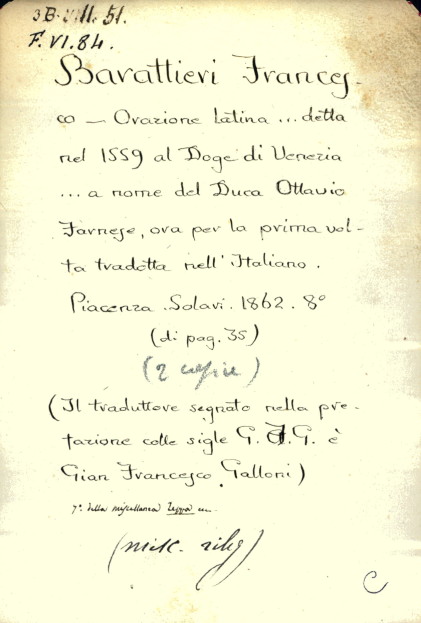 3B.VIII.51.
F.VI.84.
Barattieri Frances-
co — Orazione latina ... detta
nel 1559 al Doge di Venezia
... a nome del Duca Ottavio
Farnese, ora per la prima vol-
ta tradotta nell'Italiano.
Piacenza. Solari. 1862. 8°
(di pag. 35)
(2 copie)
(Il traduttore segnato nella pre-
fazione colle sigle G. F. G. è
Gian Francesco Galloni)
7° della miscellanea
(misc. rileg)
C